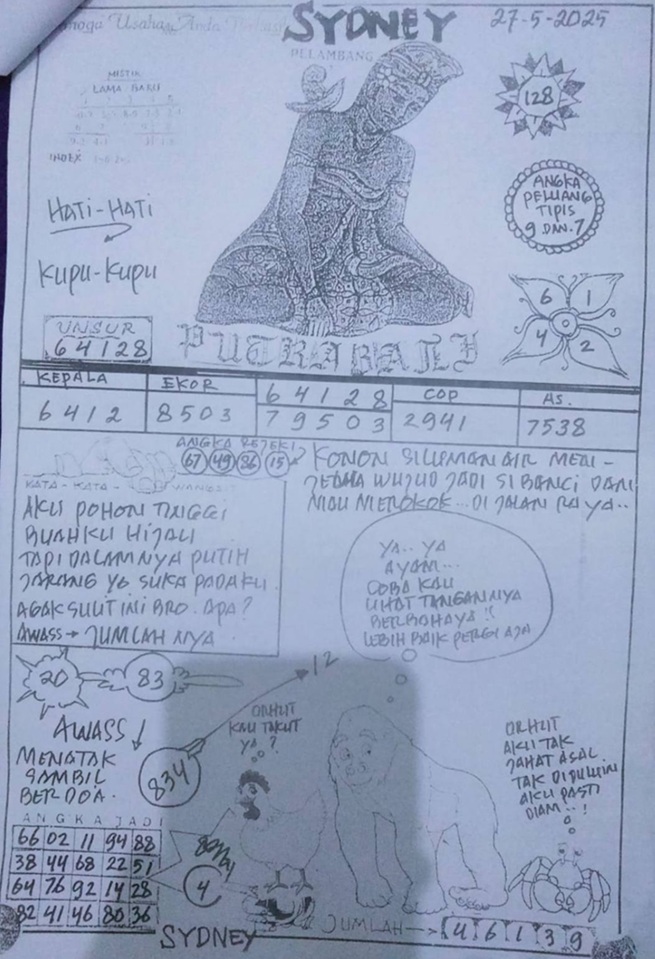 Semoga Usaha Anda Berhasil
SYDNEY
27-5-2025
PELAMBANG
MISTIK
LAMA BARU
INDEX
128
HATI-HATI
KUPU-KUPU
ANGKA
PELUANG
TIPIS
9 DAN 7
6 1
4 2
UNSUR
64128
PUTRA BALI
KEPALA
EKOR
64128
COP
AS.
6412
8503
79503
2941
7538
ANGKA REJEKI
67 49 36 15
KONON SILUMAN AIR MEN-
JELMA WUJUD JADI SI BANCI DAN
MAU MEROKOK... DI JALAN RAYA..
KATA - KATA - WANGSIT
AKU POHON TINGGI
BUAHKU HIJAU
TAPI DALAMNYA PUTIH
JARANG YG SUKA PADAKU
AGAK SULIT INI BRO. APA?
AWASS → JUMLAH NYA
YA.. YA
AYAM...
COBA KAU
LIHAT TANGANNYA
BERBAHAYA !!
LEBIH BAIK PERGI AJA
20
83
12
AWASS ↓
MENATAK
SAMBIL
BERDOA.
834
ORHUT
KAU TAKUT
YA ?
ORHUT
AKU TAK
JAHAT ASAL.
TAK DIDULUIN
AKU PASTI
DIAM...!
ANGKA JADI
66 02 11 94 88
38 44 68 22 51
64 76 92 14 28
82 41 46 80 36
4
JUMLAH → 4 6 1 3 9
SYDNEY